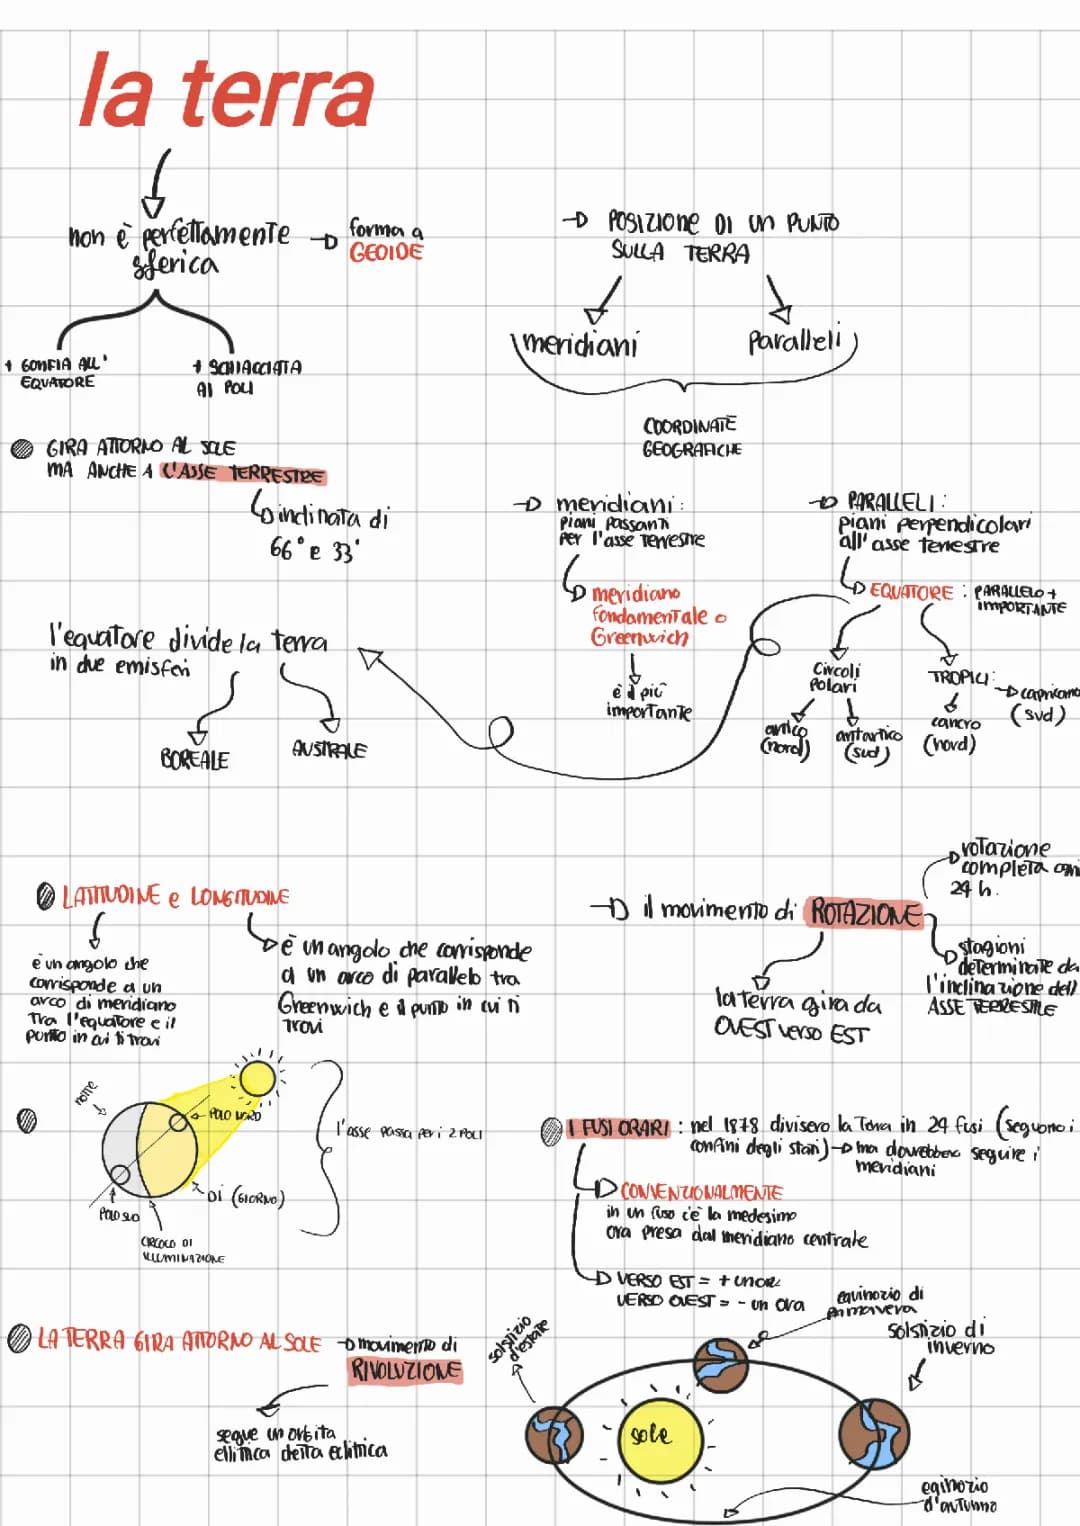 la terra
non è perfettamente
sferica
forma a
GEOIDE
+ GONFIA ALL'
EQUATORE
+ SCHIACCIATA
AI POLI
POSIZIONE DI UN PUNTO
SULLA TERRA
meridiani
Paralleli
COORDINATE
GEOGRAFICHE
GIRA ATTORNO AL SOLE
MA ANCHE A L'ASSE TERRESTRE
inclinata di
66° e 33'
meridiani:
Piani Passanti
Per l'asse Terrestre
meridiano
fondamentale o
Greenwich
è il più
importante
PARALLELI:
Piani perpendicolari
all'asse terrestre
EQUATORE : PARALLELO +
IMPORTANTE
Circoli
Polari
artico
(nord)
antartico
(sud)
TROPICI:
cancro
(nord)
capricorno
(sud)
l'equatore divide la terra
in due emisferi
BOREALE
AUSTRALE
LATITUDINE e LONGITUDINE
è un angolo che
corrisponde a un
arco di meridiano
Tra l'equatore e il
punto in cui ti trovi
è un angolo che corrisponde
a un arco di parallelo tra
Greenwich e il punto in cui ti
trovi
il movimento di ROTAZIONE
rotazione
completa ogni
24 h.
stagioni
determinate da
l'inclinazione dell'
ASSE TERRESTRE
la terra gira da
OVEST verso EST
notte
POLO NORD
DÌ (GIORNO)
POLO SUD
CIRCOLO DI
ILLUMINAZIONE
l'asse passa per i 2 POLI
I FUSI ORARI : nel 1878 divisero la Terra in 24 fusi (seguono i
confini degli stati) ma dovrebbero seguire i
meridiani
CONVENZIONALMENTE
in un fuso c'è la medesimo
ora presa dal meridiano centrale
VERSO EST = + un'ora
VERSO OVEST = - un ora
LA TERRA GIRA ATTORNO AL SOLE
movimento di
RIVOLUZIONE
segue un orbita
ellittica detta eclittica
solstizio
d'estate
equinozio di
primavera
solstizio di
inverno
sole
eqinozio
d'autunno